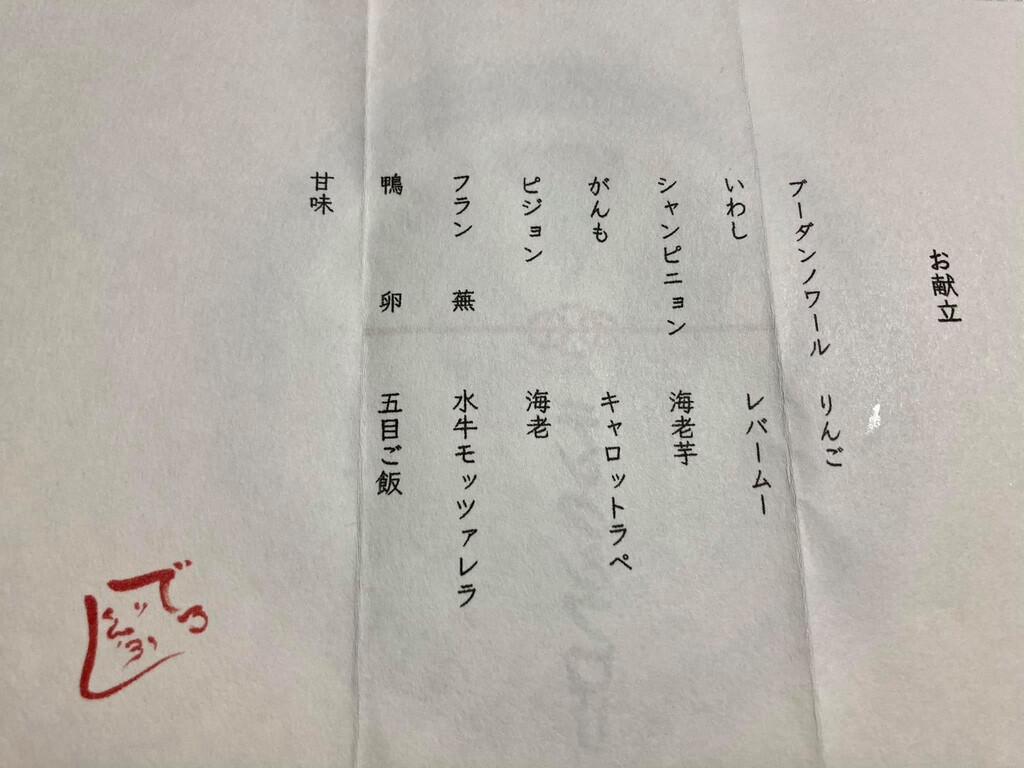 お献立
ブーダンノワール りんご
いわし レバームー
シャンピニョン 海老芋
がんも キャロットラペ
ピジョン 海老
フラン 蕪 水牛モッツァレラ
鴨 卵 五目ご飯
甘味